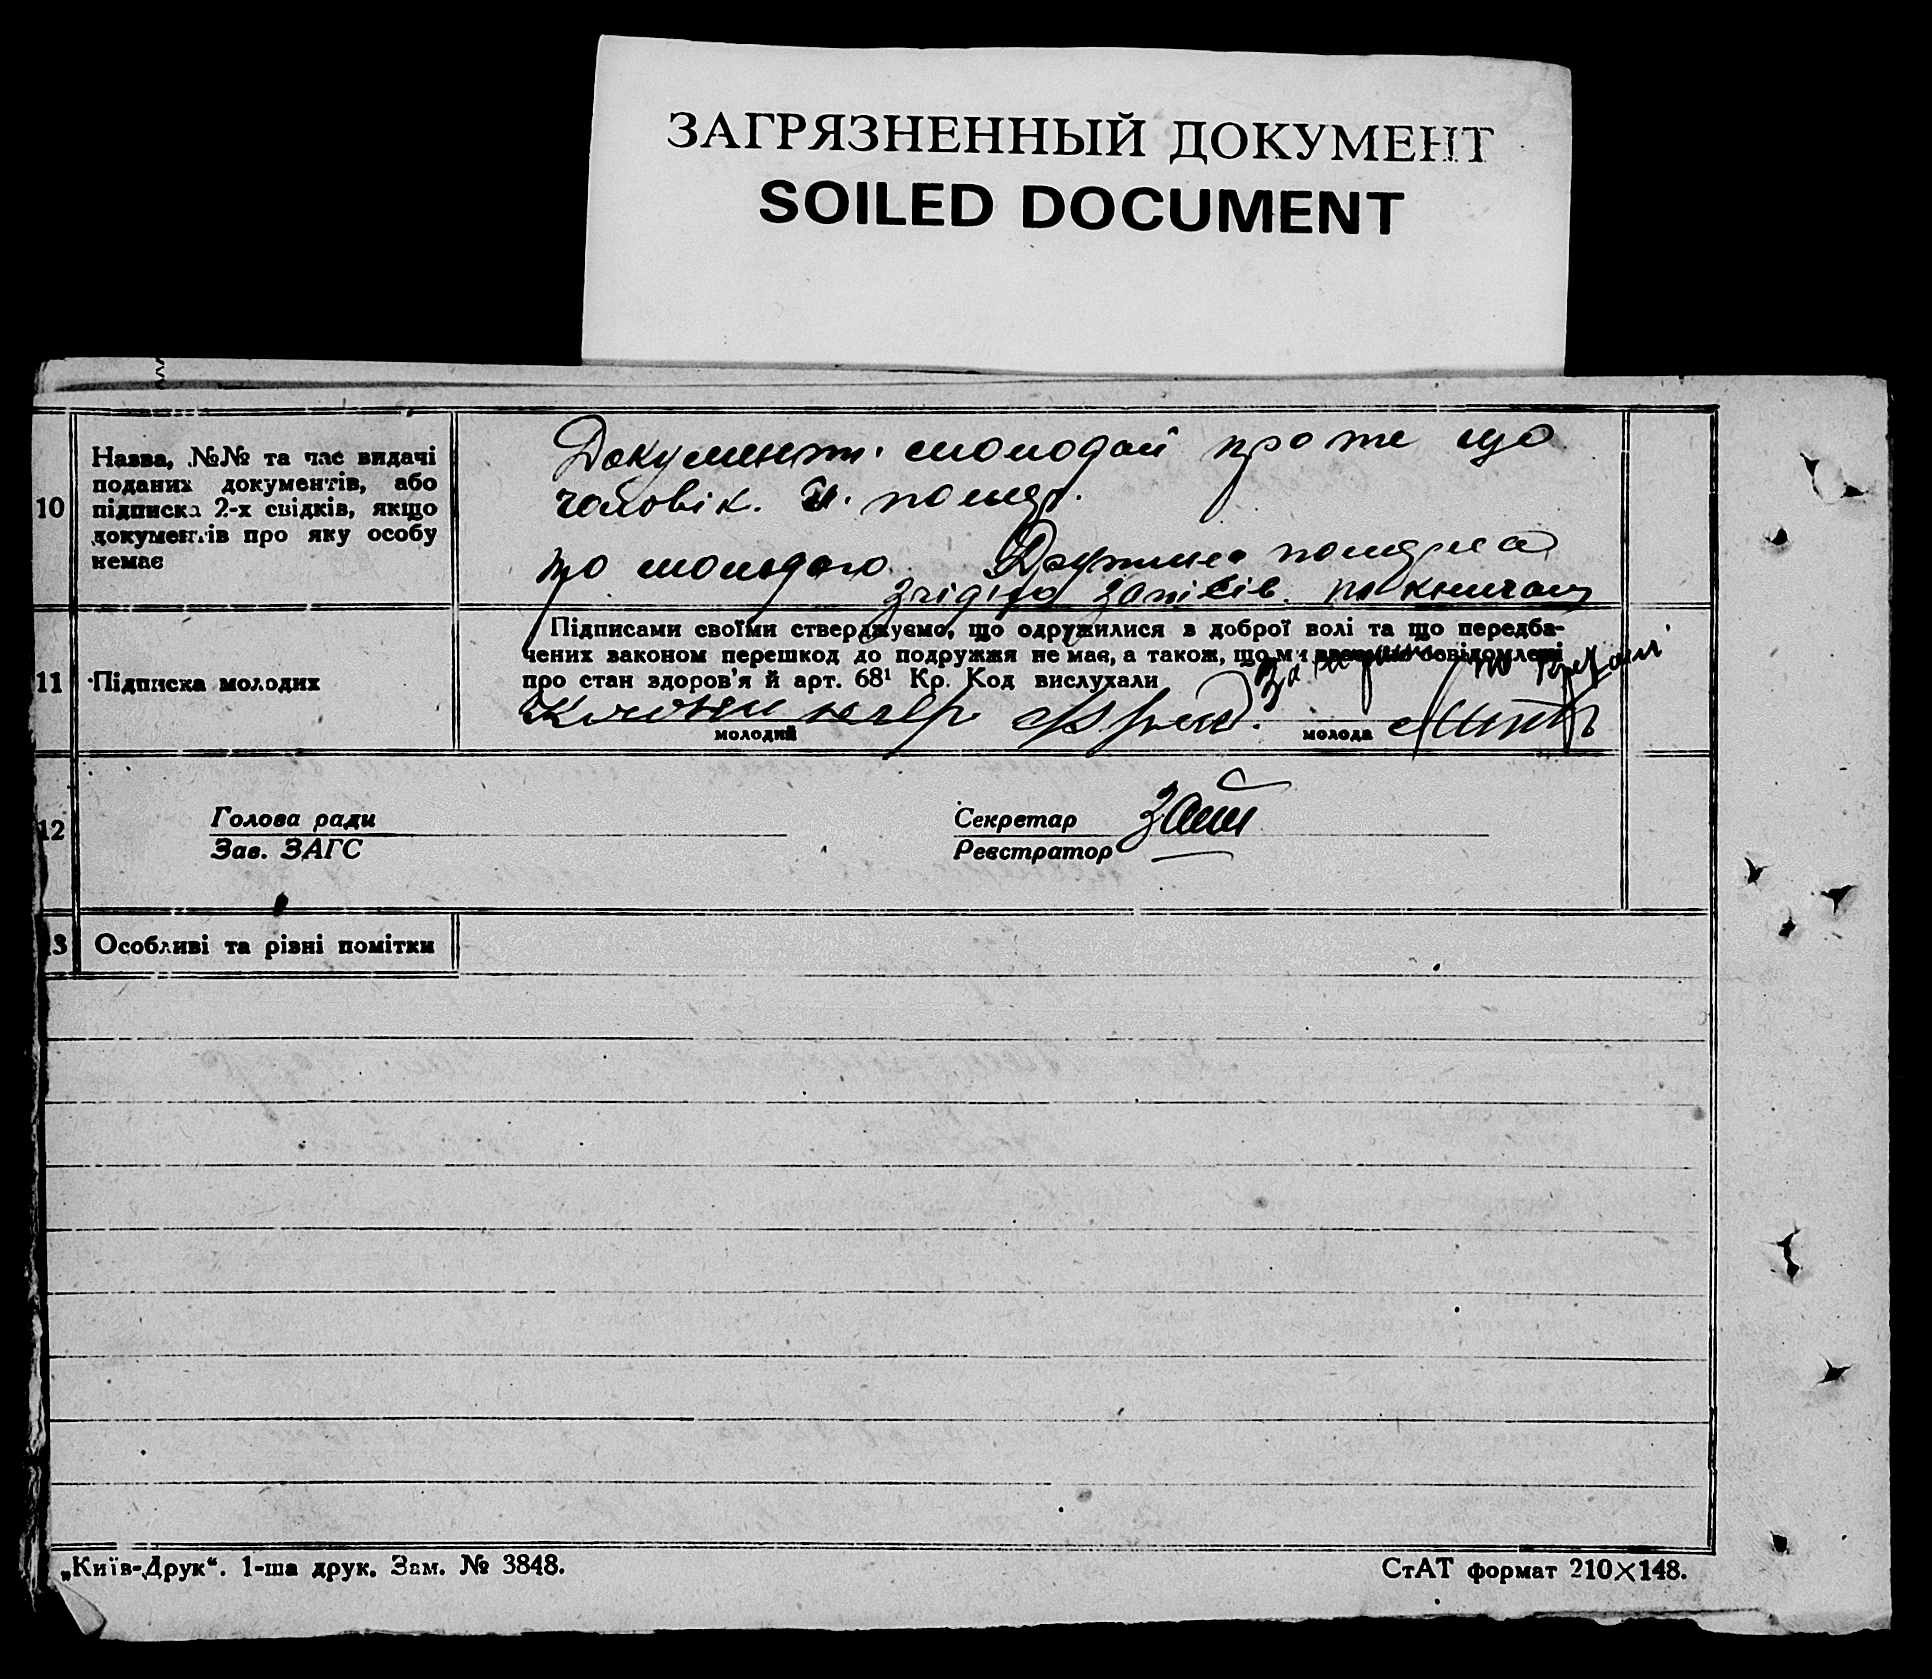 ЗАГРЯЗНЕННЫЙ ДОКУМЕНТ
SOILED DOCUMENT
10
Назва, №№ та час видачі
поданих документів, або
підписка 2-х свідків, якщо
документів про яку особу
немає
Документ молодой про те що
чоловік її помер
про молодого Дружина померла
згідно записів по книгам
11
Підписка молодих
Підписами своїми стверджуємо, що одружилися в доброї волі та що передба-
чених законом перешкод до подружжя не має, а також, що ми взаємно освідомлені
про стан здоров'я й арт. 68¹ Кр. Код вислухали
молодий
молода
12
Голова ради
Зав. ЗАГС
Секретар
Реєстратор
13
Особливі та різні помітки
„Київ-Друк“. 1-ша друк. Зам. № 3848.
СтАТ формат 210×148.